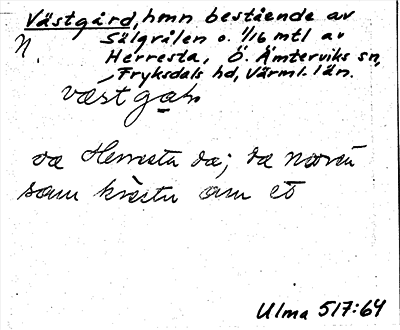 Västgård, hmn bestående av
N. Sälgrålen o. 1/16 mtl av
Herresta, Ö. Ämterviks sn,
Fryksdals hd, Värml. län.
væstgaɷ
da Herresta da; da
som om et
Ulma 517:64